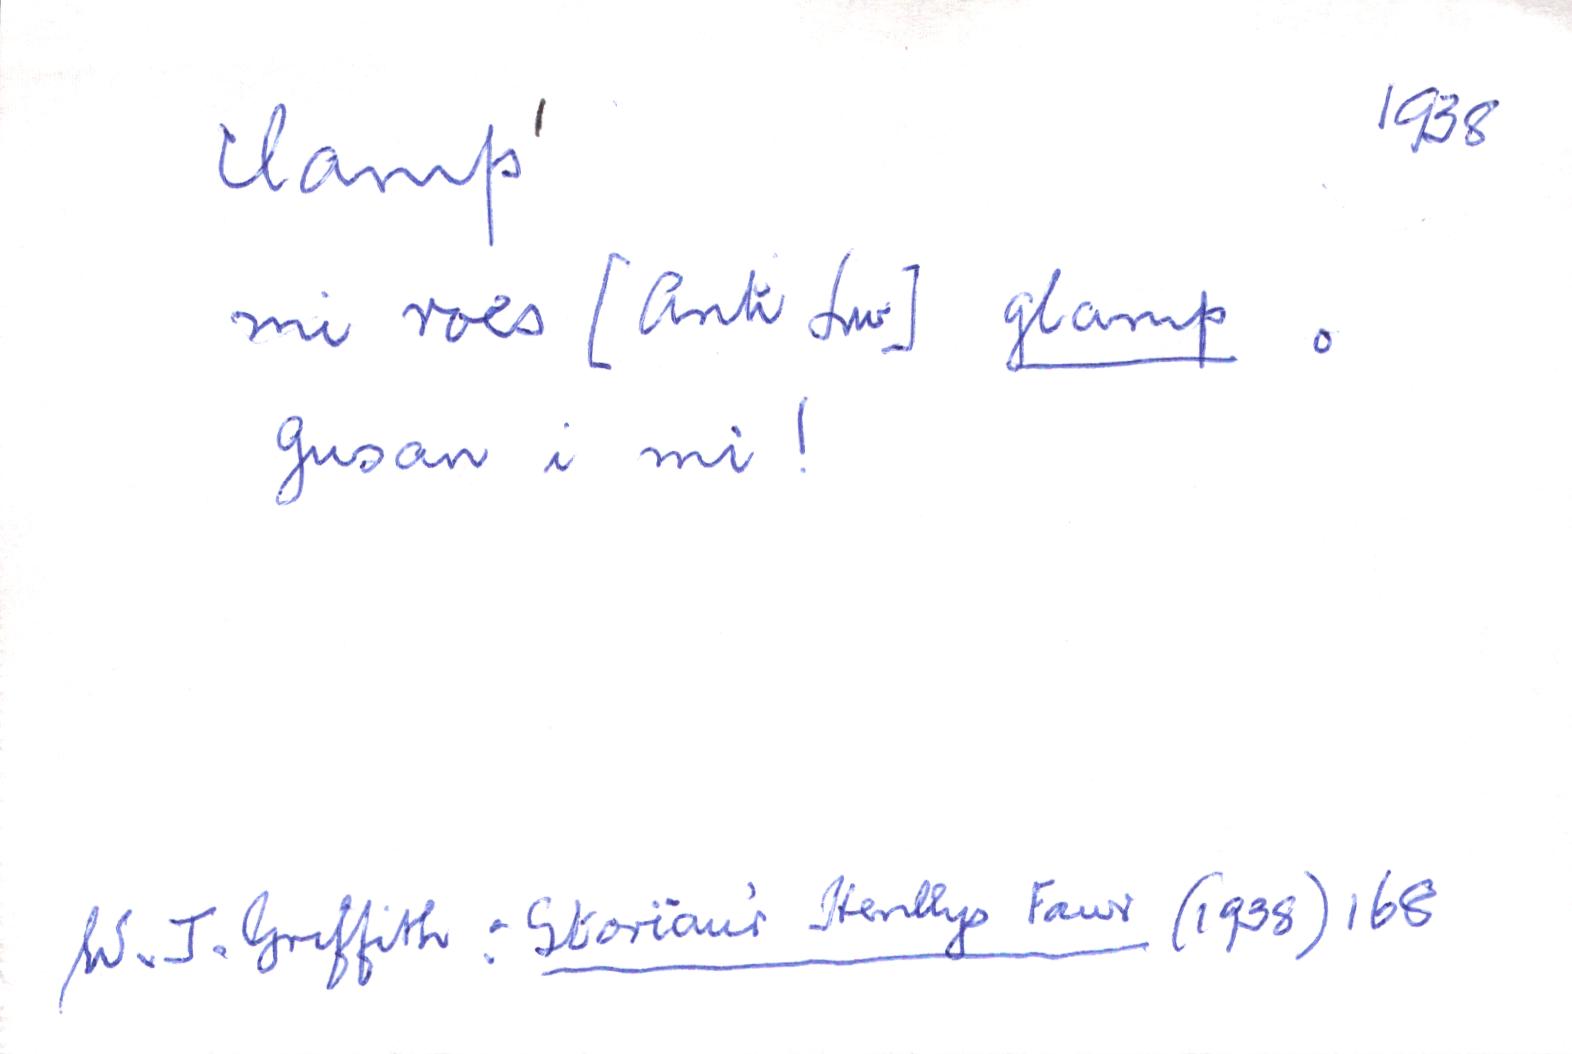 clamp¹
1938
mi roes [Anti Lw] glamp o
gusan i mi!
W. J. Griffith : Storïau'r Henllys Fawr (1938) 168